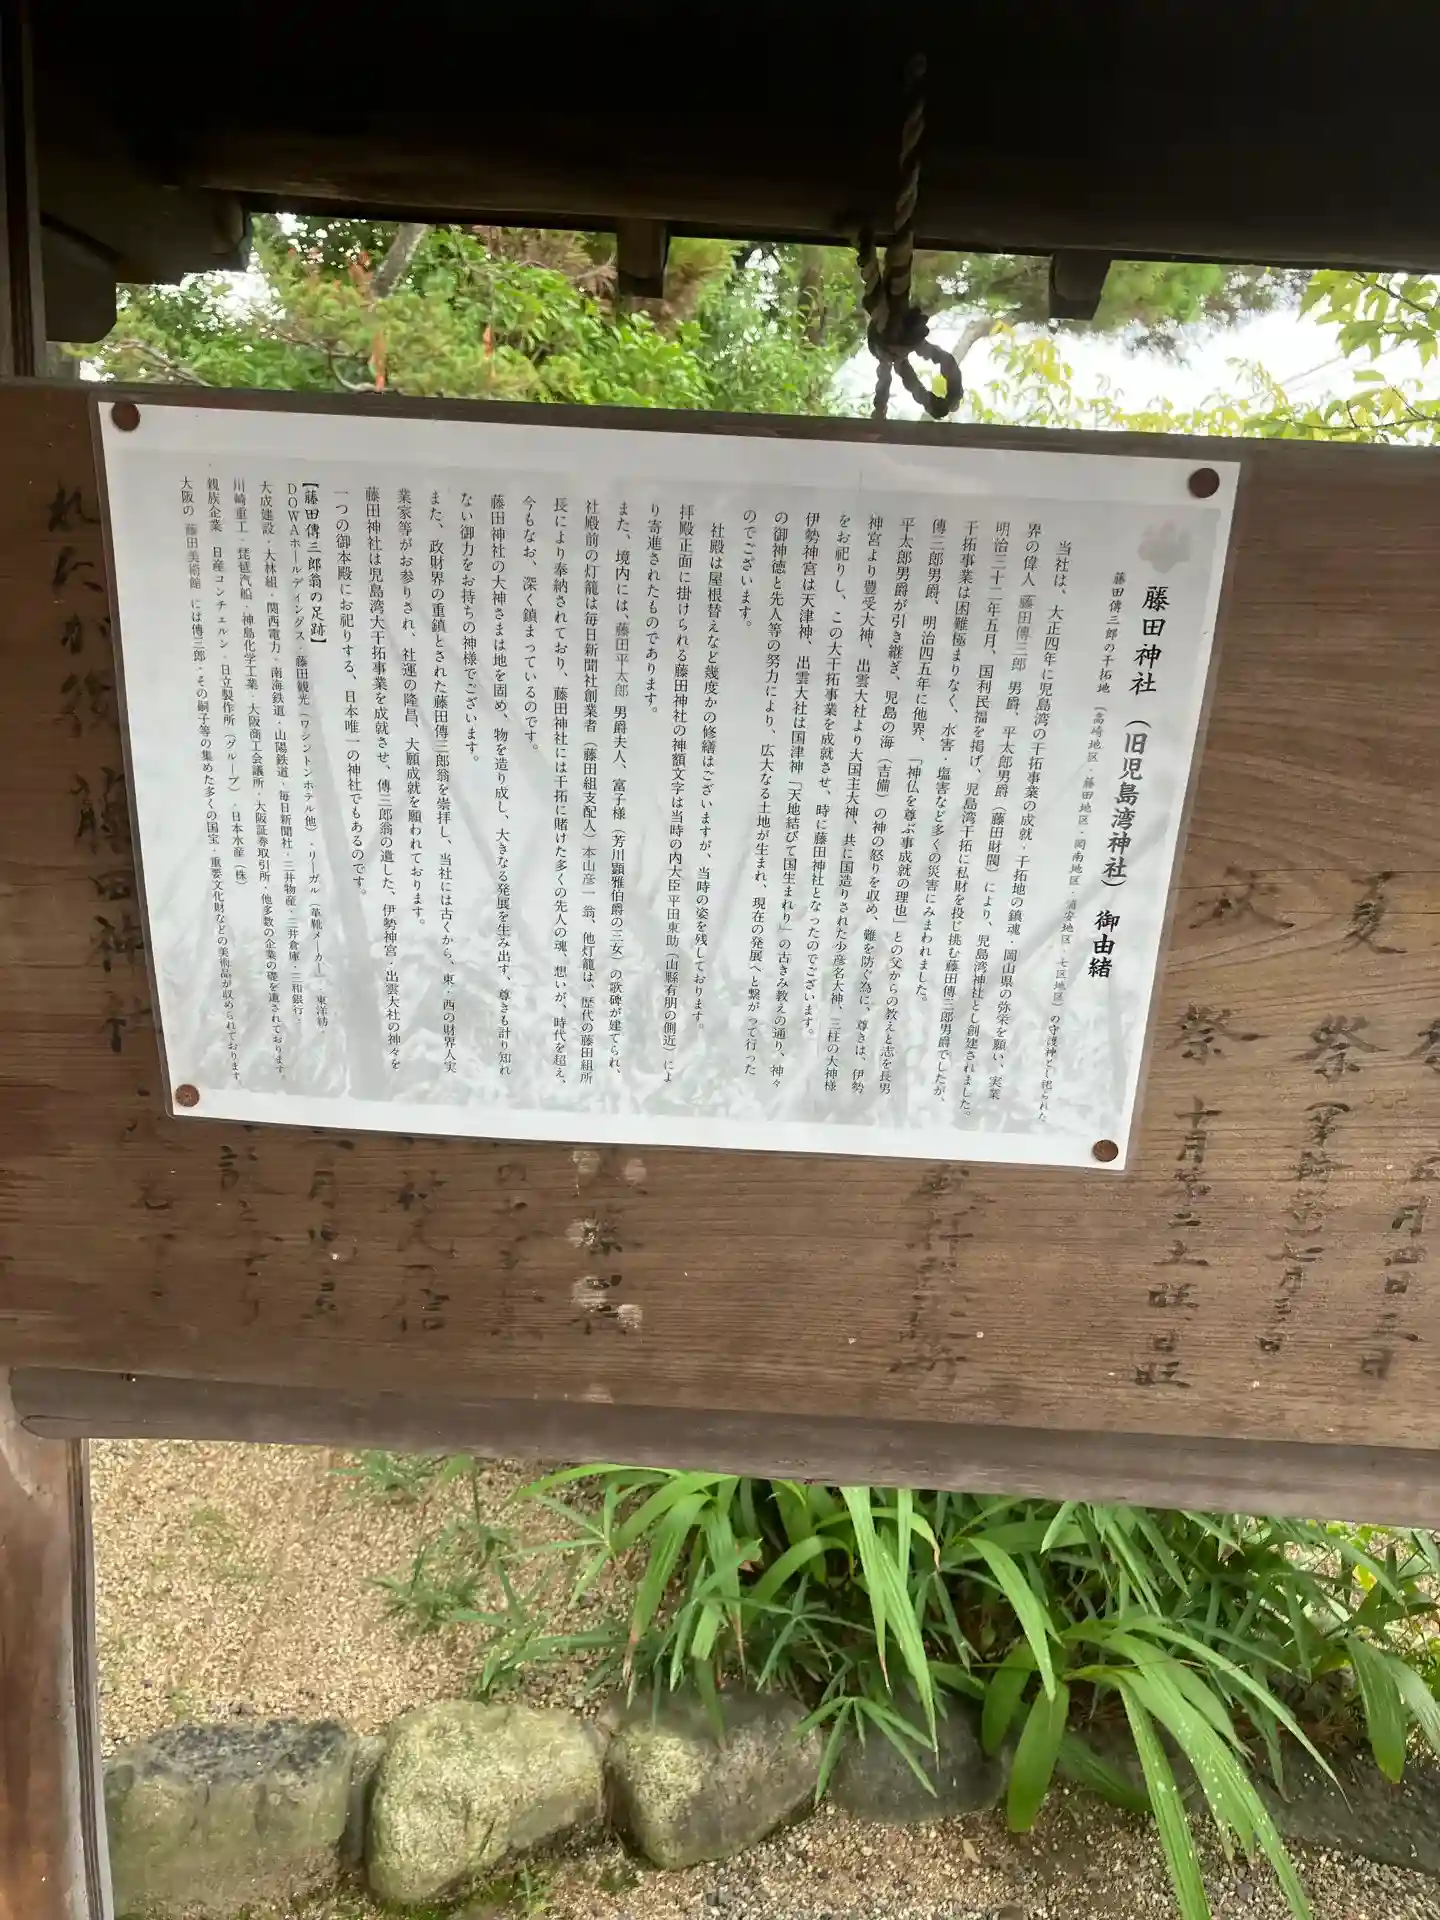 藤田神社（旧児島湾神社）御由緒
藤田傳三郎の干拓地（高崎地区・藤田地区・岡南地区・浦安地区・七区地区）の守護神として祀られた
当社は、大正四年に児島湾の干拓事業の成就・干拓地の鎮魂・岡山県の弥栄を願い、実業
界の偉人「藤田傳三郎 男爵、平太郎男爵（藤田財閥）により、児島湾神社とし創建されました。
明治三十二年五月、国利民福を掲げ、児島湾干拓に私財を投じ挑む藤田傳三郎男爵でしたが、
干拓事業は困難極まりなく、水害・塩害など多くの災害にみまわれました。
傳三郎男爵、明治四五年に他界、「神仏を尊ぶ事成就の理也」との父からの教えと志を長男
平太郎男爵が引き継ぎ、児島の海（吉備）の神の怒りを収め、難を防ぐ為に、尊きは、伊勢
神宮より豊受大神、出雲大社より大国主大神、共に国造りされた少彦名大神、三柱の大神様
をお祀りし、この大干拓事業を成就させ、時に藤田神社となったのでございます。
伊勢神宮は天津神、出雲大社は国津神「天地結びて国生まれり」の古きみ教えの通り、神々
の御神徳と先人等の努力により、広大なる土地が生まれ、現在の発展へと繋がって行った
のでございます。
社殿は屋根替えなど幾度かの修繕はございますが、当時の姿を残しております。
拝殿正面に掛けられる藤田神社の神額文字は当時の内大臣平田東助（山縣有朋の側近）によ
り寄進されたものであります。
また、境内には、藤田平太郎 男爵夫人、富子様（芳川顕雅伯爵の三女）の歌碑が建てられ、
社殿前の灯籠は毎日新聞社創業者（藤田組支配人）本山彦一 翁、他灯籠は、歴代の藤田組所
長により奉納されており、藤田神社には干拓に賭けた多くの先人の魂、想いが、時代を超え、
今もなお、深く鎮まっているのです。
藤田神社の大神さまは地を固め、物を造り成し、大きなる発展を生み出す、尊きも計り知れ
ない御力をお持ちの神様でございます。
また、政財界の重鎮とされた藤田傳三郎翁を崇拝し、当社には古くから、東・西の財界人実
業家等がお参りされ、社運の隆昌、大願成就を願われております。
藤田神社は児島湾大干拓事業を成就させ、傳三郎翁の遺した、伊勢神宮・出雲大社の神々を
一つの御本殿にお祀りする、日本唯一の神社でもあるのです。
【藤田傳三郎翁の足跡】
DOWAホールディングス・藤田観光（ワシントンホテル他）・リーガル（革靴メーカー）・東洋紡・
大成建設・大林組・関西電力・南海鉄道・山陽鉄道・毎日新聞社・三井物産・三井倉庫・三和銀行・
川崎重工・琵琶汽船・神島化学工業・大阪商工会議所・大阪証券取引所・他多数の企業の礎を遺されております。
親族企業 日産コンチェルン・日立製作所（グループ）・日本水産（株）
大阪の「藤田美術館」には傳三郎・その嗣子等の集めた多くの国宝・重要文化財などの美術品が収められております。
五月四日五日
夏祭
秋祭 十月第二土曜日曜